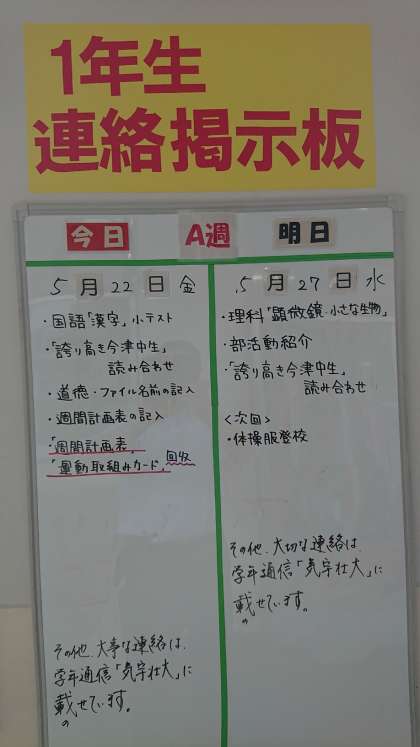 1年生
連絡掲示板
今日 A週 明日
5月22日金
・国語「漢字」小テスト
・「誇り高き今津中生」
読み合わせ
・道徳・ファイル名前の記入
・週間計画表の記入
・「週間計画表」
「運動取組みカード」回収
その他、大事な連絡は、
学年通信「気宇壮大」に
載せています。
5月27日水
・理科「顕微鏡・小さな生物」
・部活動紹介
・「誇り高き今津中生」
読み合わせ
<次回>
・体操服登校
その他、大切な連絡は、
学年通信「気宇壮大」に
載せています。